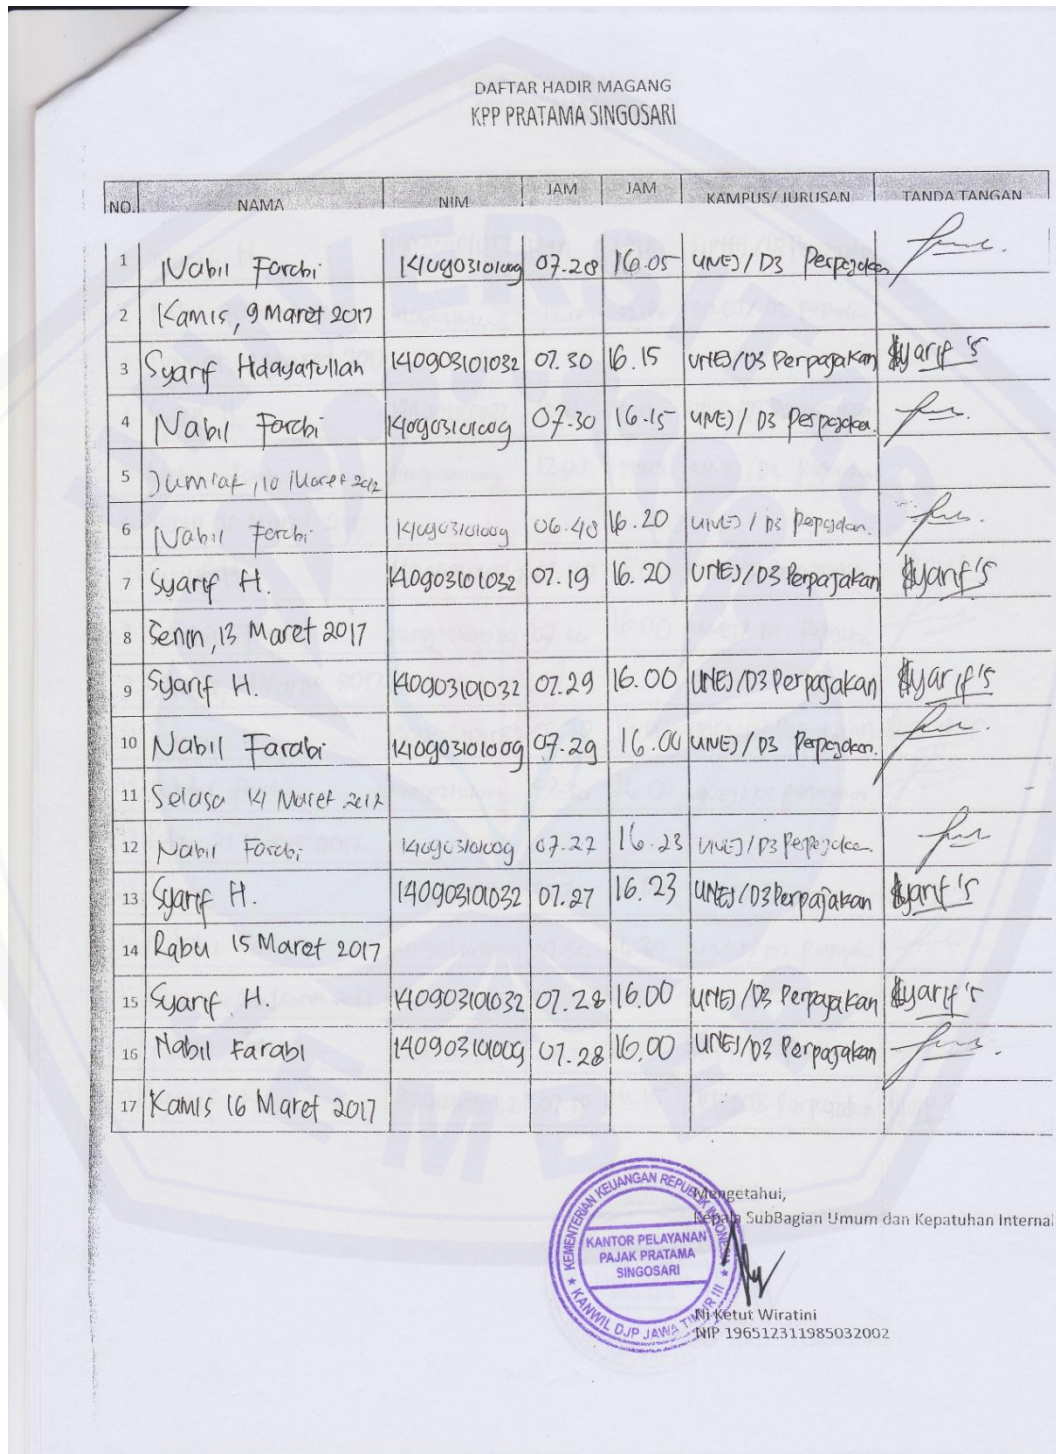 DAFTAR HADIR MAGANG
KPP PRATAMA SINGOSARI
NO. NAMA NIM JAM JAM KAMPUS/ JURUSAN TANDA TANGAN
1 Nabil Farabi 140903101009 07.28 16.05 UNEJ / D3 Perpajakan
2 Kamis, 9 Maret 2017
3 Syarif Hdayatullah 140903101032 07.30 16.15 UNEJ/D3 Perpajakan Syarif's
4 Nabil Farabi 140903101009 07.30 16.15 UNEJ / D3 Perpajakan.
5 Jum'at, 10 Maret 2017
6 Nabil Farabi 140903101009 06.48 16.20 UNEJ / D3 Perpajakan.
7 Syarif H. 140903101032 07.19 16.20 UNEJ/D3 Perpajakan Syarif's
8 Senin, 13 Maret 2017
9 Syarif H. 140903101032 07.29 16.00 UNEJ/D3 Perpajakan Syarif's
10 Nabil Farabi 140903101009 07.29 16.00 UNEJ / D3 Perpajakan.
11 Selasa 14 Maret 2017
12 Nabil Farabi 140903101009 07.27 16.23 UNEJ / D3 Perpajakan.
13 Syarif H. 140903101032 07.27 16.23 UNEJ/D3 Perpajakan Syarif's
14 Rabu 15 Maret 2017
15 Syarif H. 140903101032 07.28 16.00 UNEJ/D3 Perpajakan Syarif's
16 Nabil Farabi 140903101009 07.28 16.00 UNEJ/D3 Perpajakan
17 Kamis 16 Maret 2017
Mengetahui,
Kepala SubBagian Umum dan Kepatuhan Internal
KEMENTERIAN KEUANGAN REPUBLIK INDONESIA
KANTOR PELAYANAN
PAJAK PRATAMA
SINGOSARI
KANWIL DJP JAWA TIMUR III
Ni Ketut Wiratini
NIP 196512311985032002